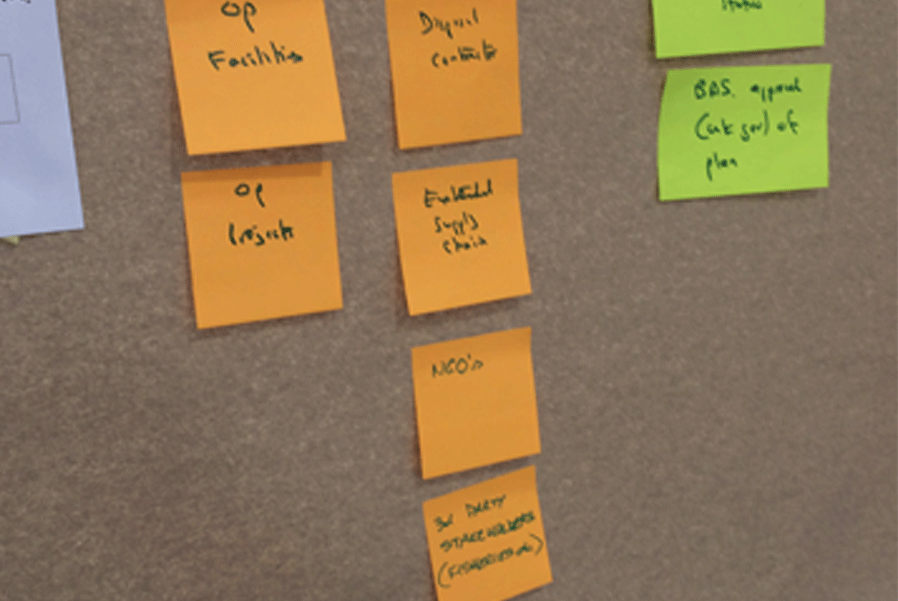 Op
Facilities
Op
Projects
Disposal
contractor
Extended
Supply
Chain
NGO's
3rd PARTY
STAKEHOLDERS
(FISHERIES etc)
approval
of
plan